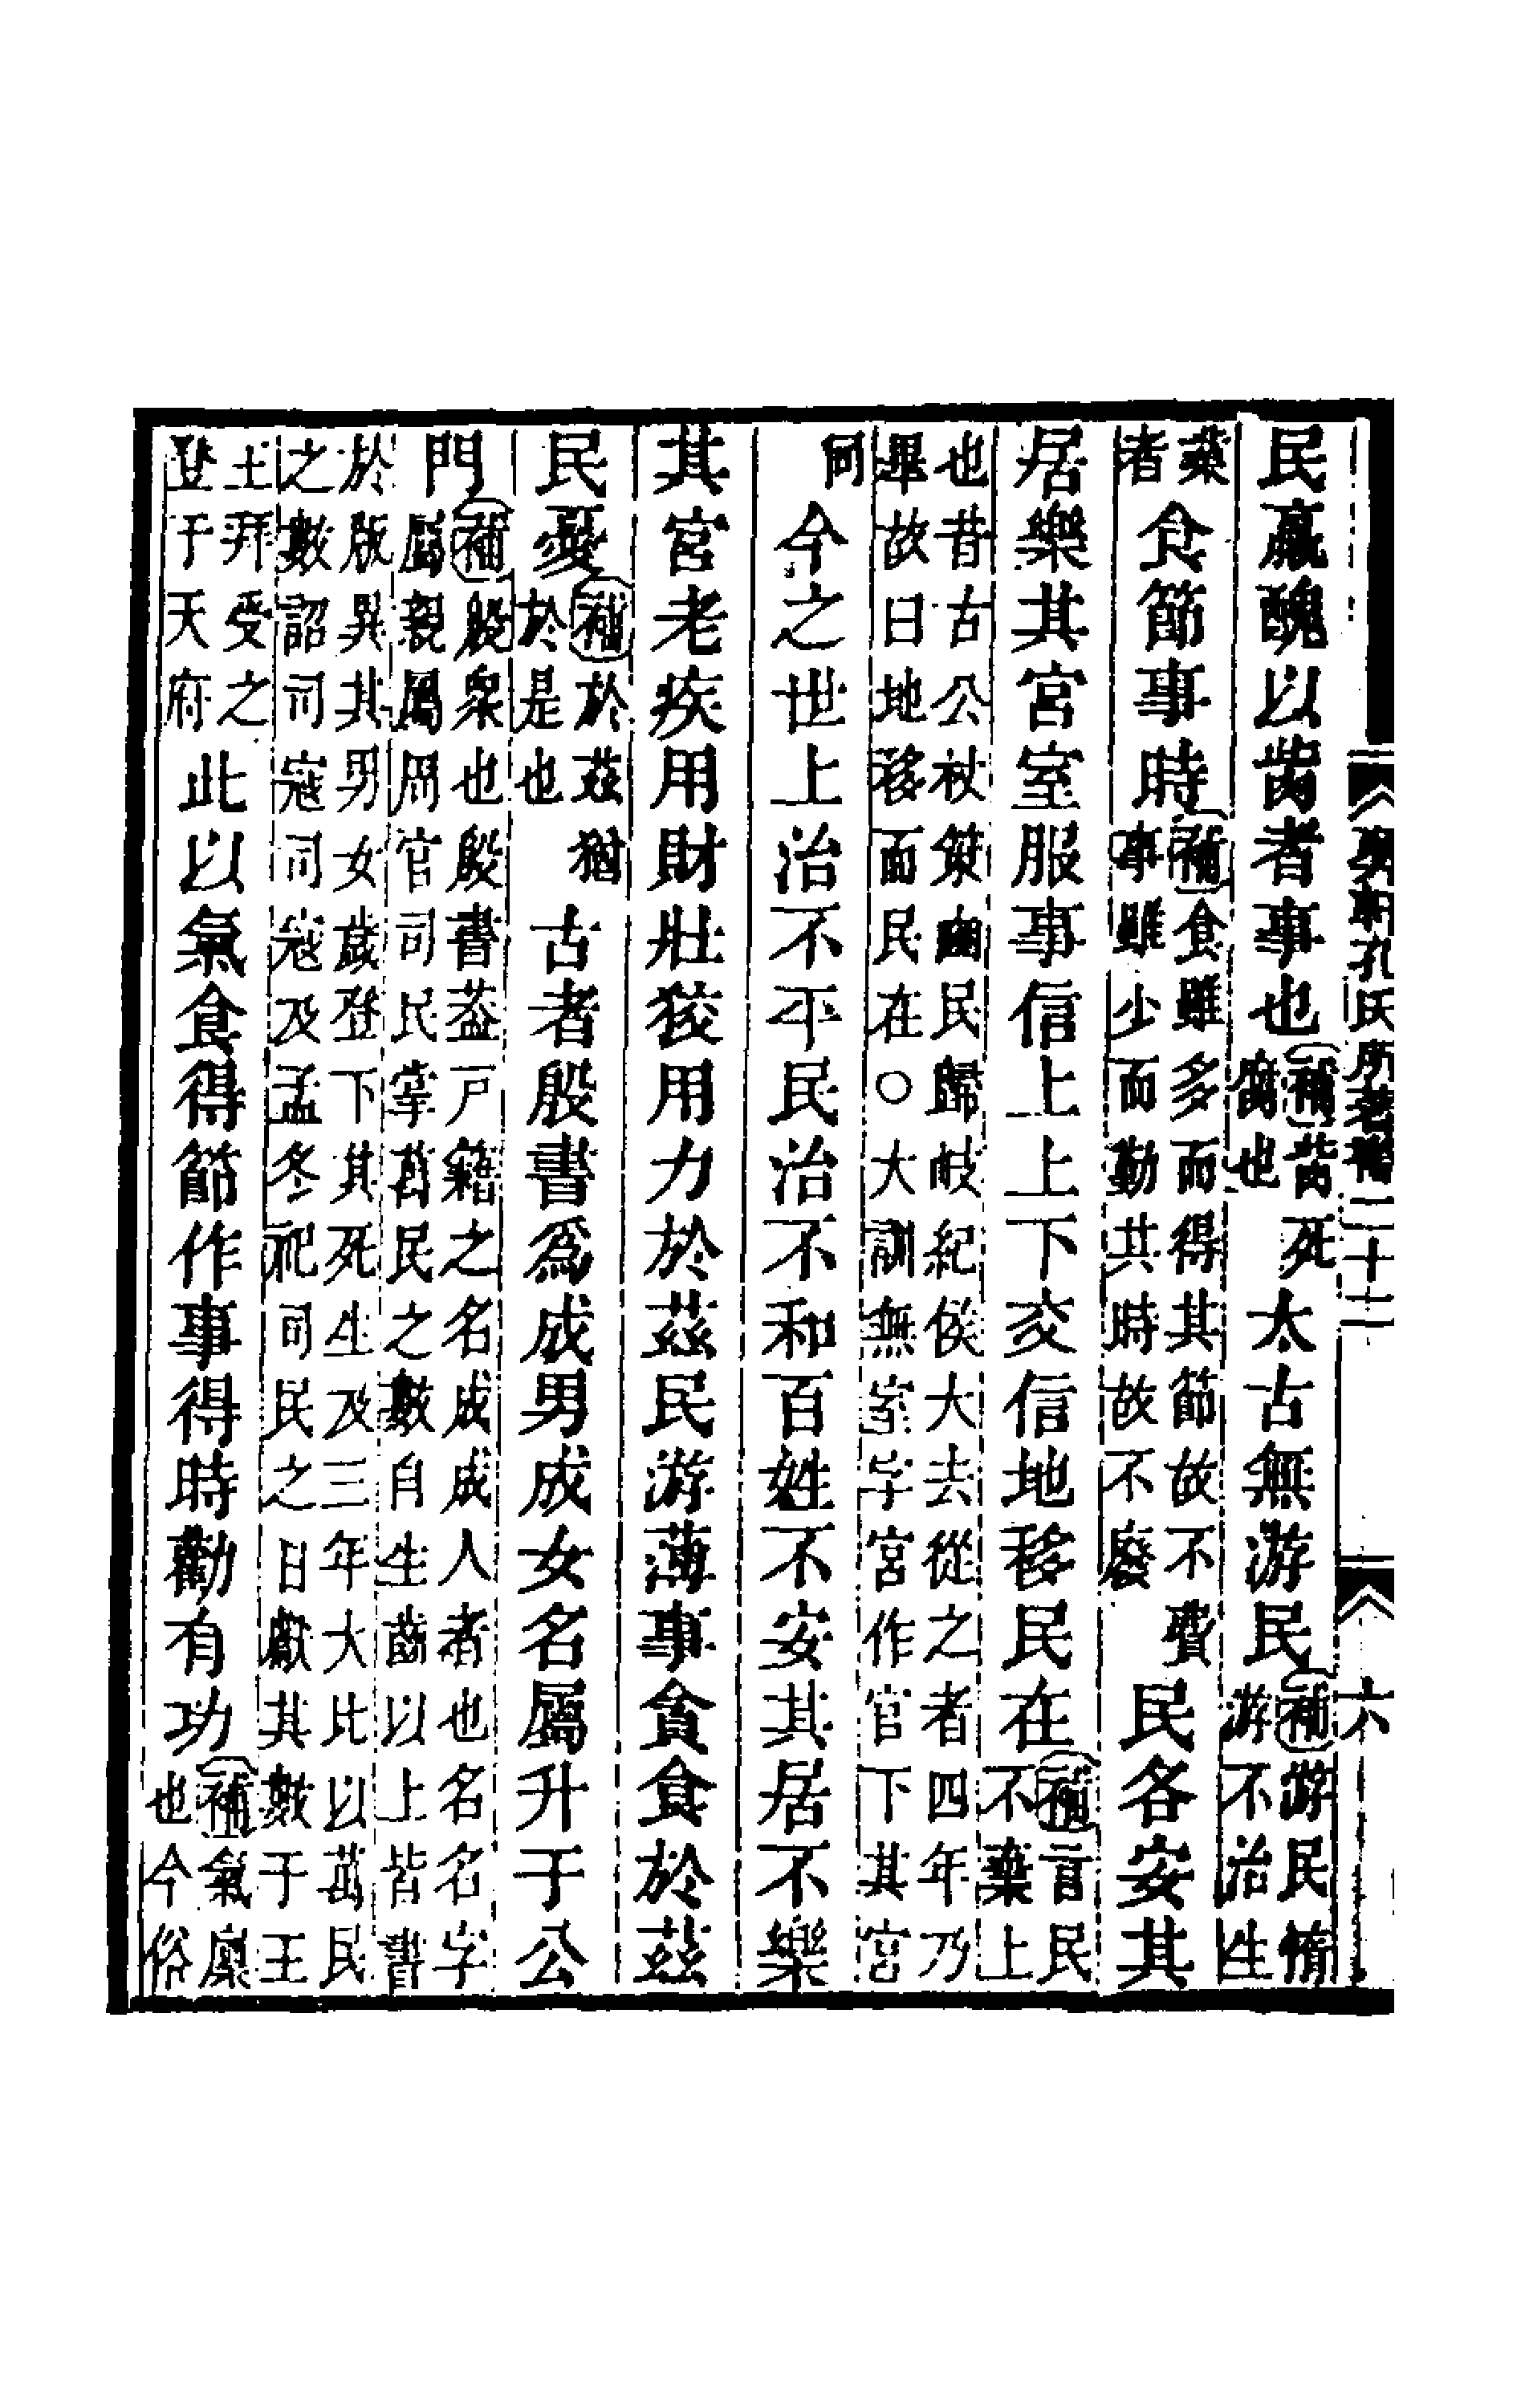 顨軒孔氏所著書二十二 六
民羸醜以胔者事也補胔死腐也太古無游民補游民惰游不治生
業者食節事時補食雖多而得其節故不費事雖少而勤其時故不廢民各安其
居樂其宮室服事信上上下交信地移民在補言民不棄上
也昔古公杖策豳民歸岐紀侯大去從之者四年乃畢故曰地移而民在○大訓無室字宮作官下其宮
同今之世上治不平民治不和百姓不安其居不樂
其宮老疾用財壯狡用力於茲民游薄事貪食於茲
民憂補於茲猶於是也古者殷書爲成男成女名屬升于公
門補殷衆也殷書葢戸籍之名成成人者也名名字屬親屬周官司民掌萬民之數自生齒以上皆書
於版異其男女歲登下其死生及三年大比以萬民之數詔司寇司寇及孟冬祀司民之日獻其數于王
王拜受之登于天府此以氣食得節作事得時勸有功補氣廩也今俗